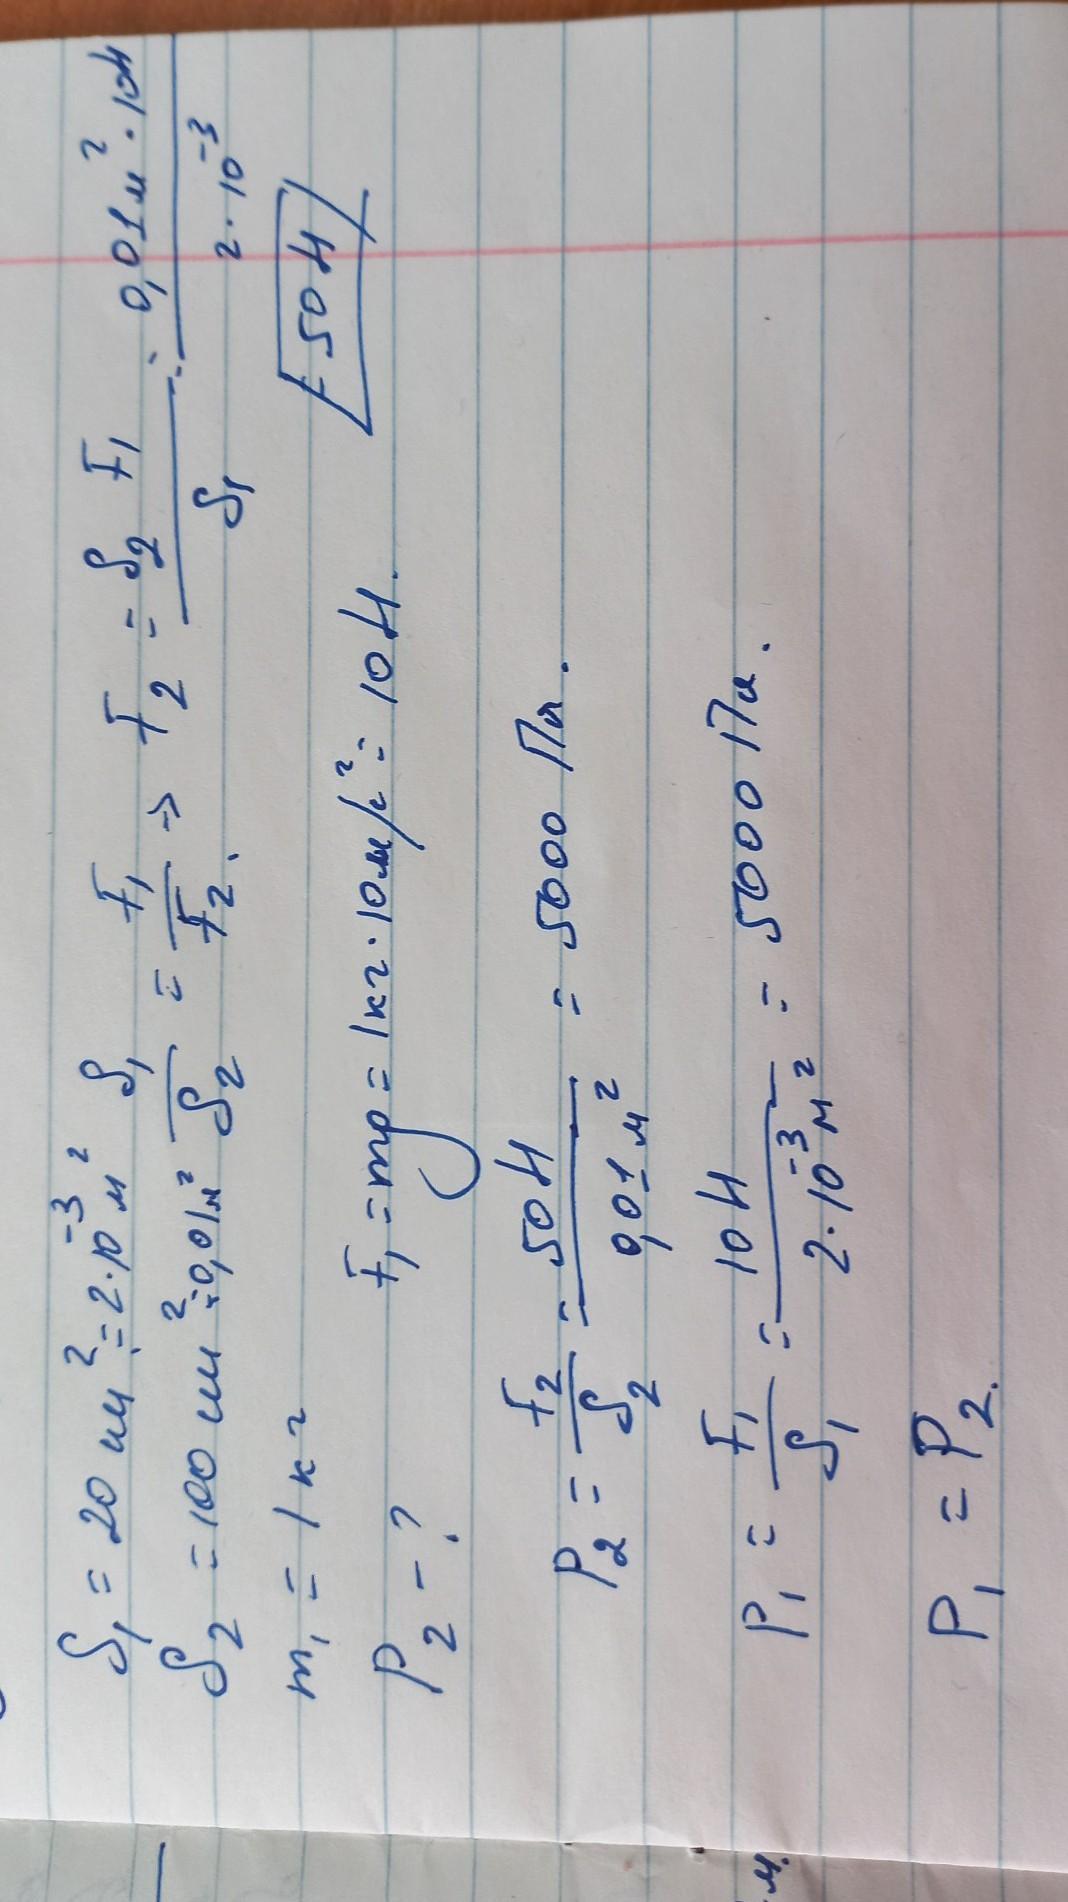 S₁ = 20 см² = 2·10⁻³ м²
S₂ = 100 см² = 0,01м²
m₁ = 1 кг
P₂ - ?
S₁/S₂ = F₁/F₂. => F₂ = S₂ F₁/S₁ = 0,01м² · 10Н/2·10⁻³
= 50Н
F₁ = mg = 1кг · 10м/с² = 10Н.
P₂ = F₂/S₂ = 50Н/0,01м² = 5000 Па.
P₁ = F₁/S₁ = 10Н/2·10⁻³м² = 5000 Па.
P₁ = P₂.